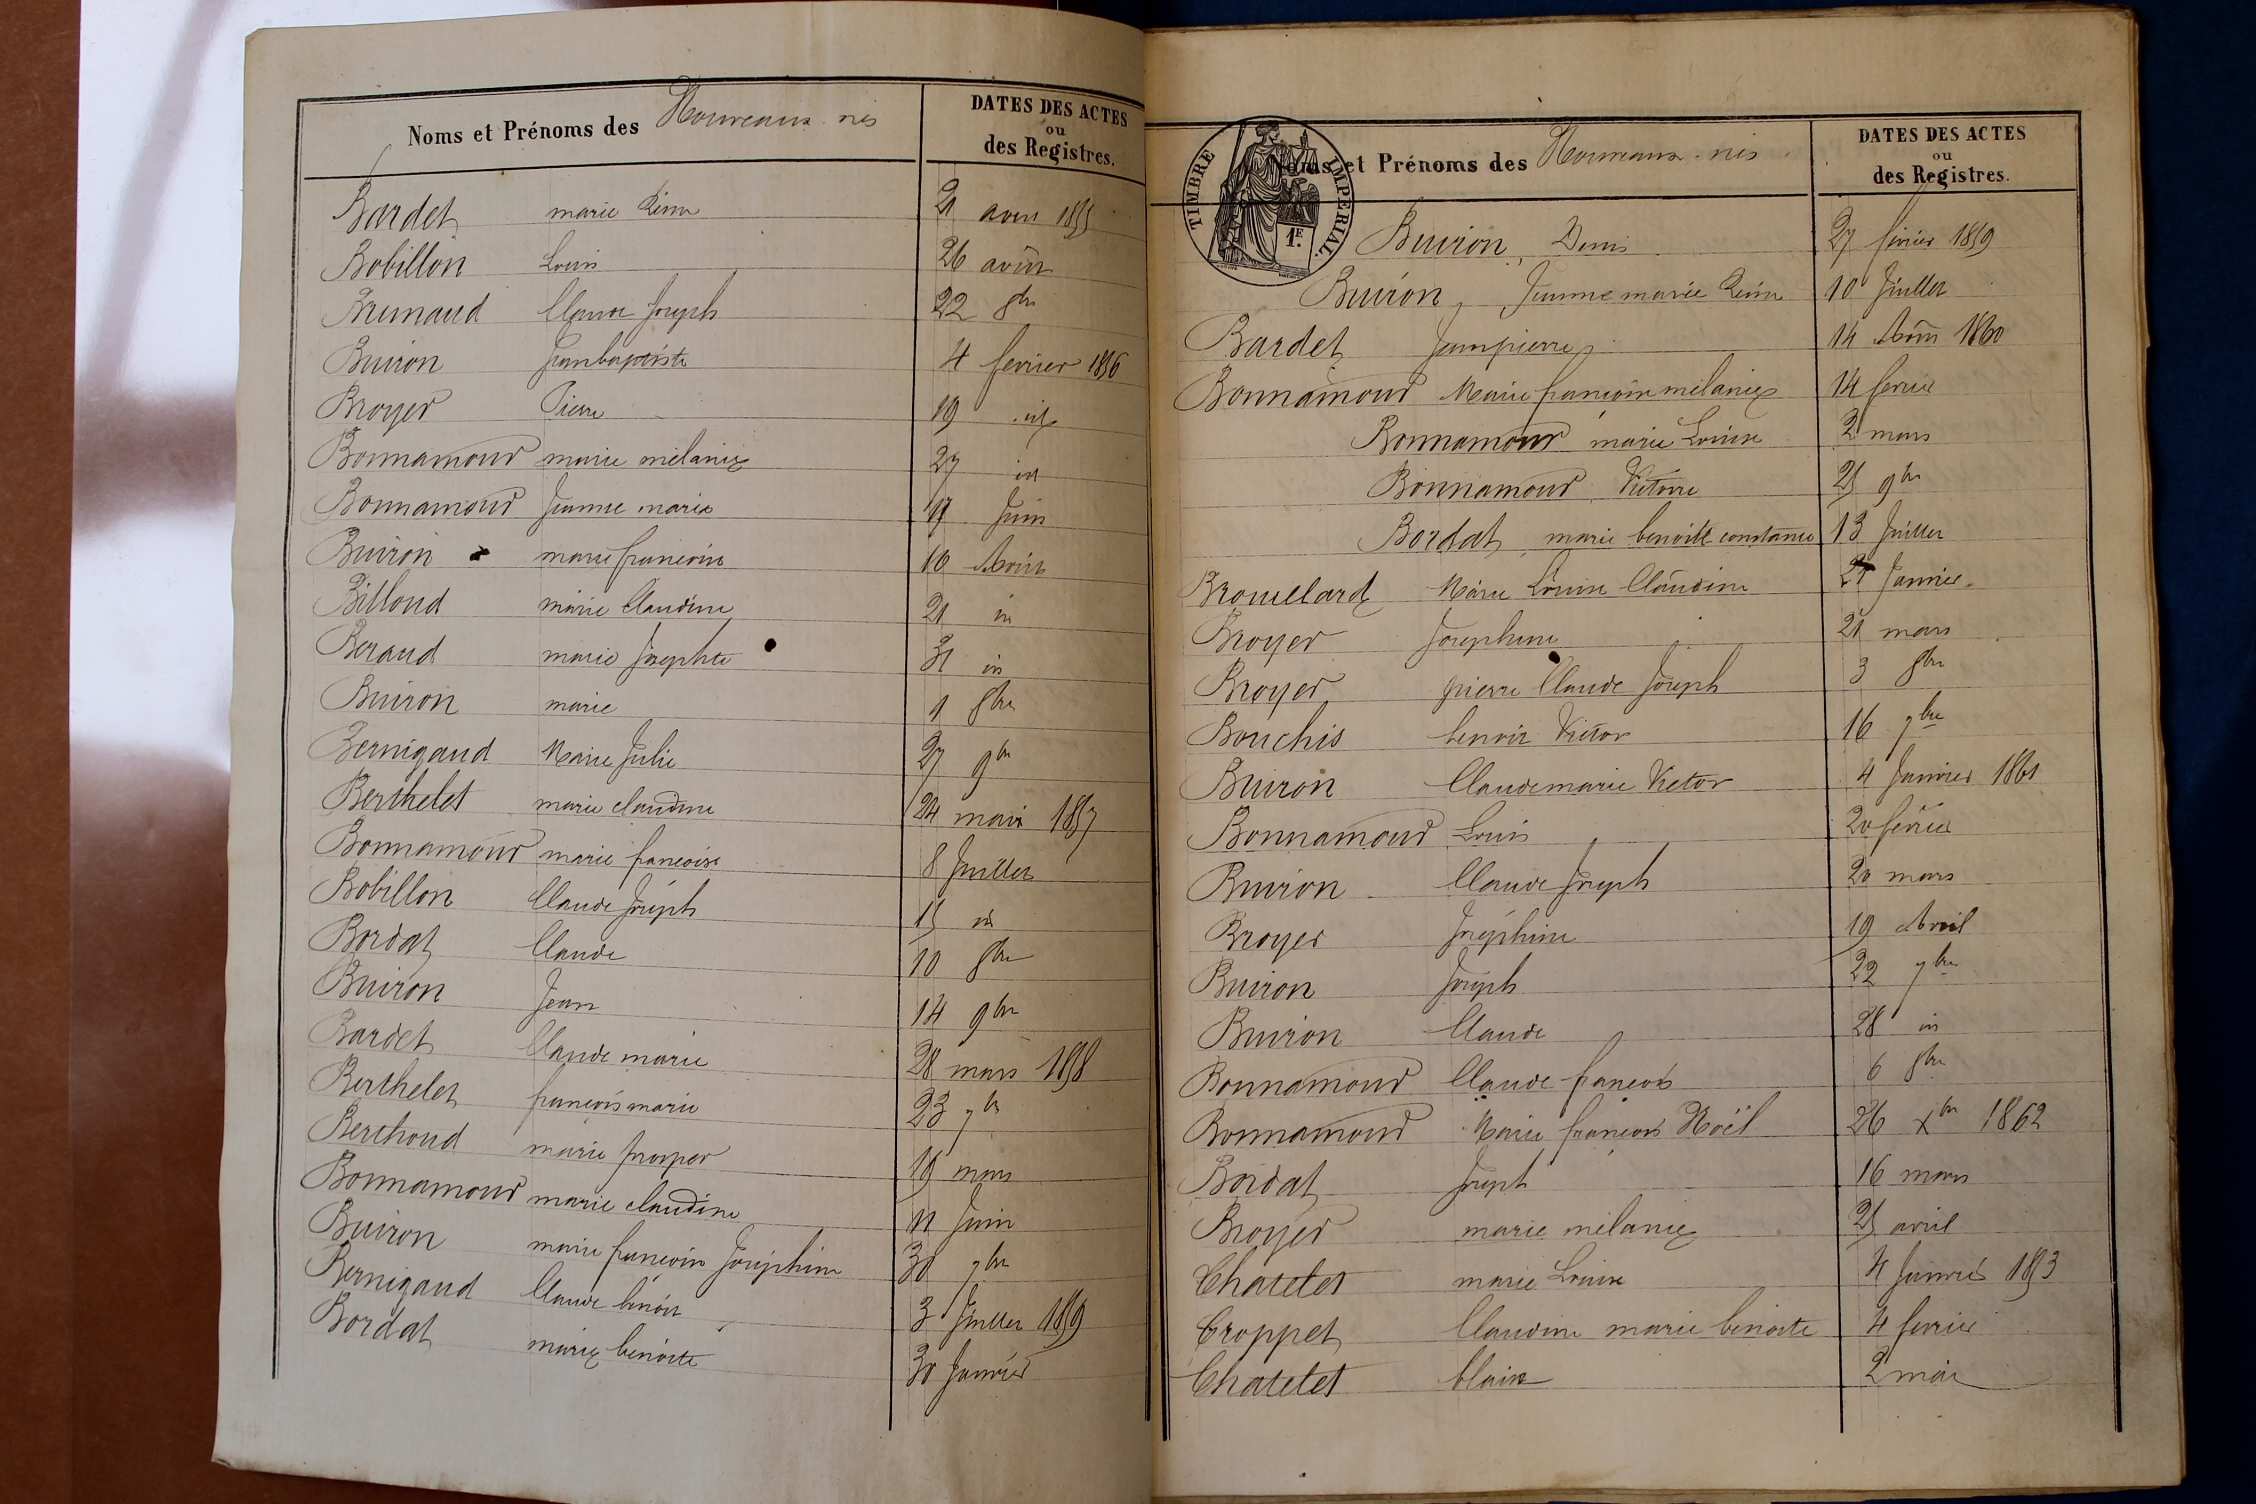 Noms et Prénoms des Nouveaux nés
DATES DES ACTES
ou
des Registres.
Bardet marie 21 1855
Bobillon Louis 26 août
Brunaud Claude Joseph 22 8bre
Buiron Jeanbaptiste 4 fevrier 1856
Broyer Pierre 19 id
Bonnamour marie mélanie 27 id
Bonnamour Jeanne marie 17 Juin
Buiron marie francoise 10 Août
Billoud marie Claudine 21 id
Beraud marie Josephte 31 id
Buiron marie 1 8bre
Bernigaud Marie Julie 27 9bre
Berthelet marie claudine 24 1857
Bonnamour marie francoise 8 Juillet
Bobillon Claude Joseph 15 id
Bordat Claude 10 8bre
Buiron Jean 14 9bre
Bardet Claude marie 28 mars 1858
Berthelet francois marie 23 7bre
Berthoud marie prosper 19 mars
Bonnamour marie claudine 11 Juin
Buiron marie francoise Joséphine 30 7bre
Bernigaud Claude benoit 3 Juillet 1859
Bordat marie benoite 30 Janvier
TIMBRE IMPÉRIAL.
1E.
Noms et Prénoms des Nouveaux nés
DATES DES ACTES
ou
des Registres.
Buiron, Denis 27 février 1859
Buiron, Jeanne marie 10 Juillet
Bardet Jeanpierre 14 Août 1860
Bonnamour Marie francoise mélanie 14 fevrier
Bonnamour marie Louise 2 mars
Bonnamour Victoire 25 9bre
Bordat marie benoite constance 13 Juillet
Brouillard Marie Louise Claudine 21 Janvier
Broyer Josephine 21 mars
Broyer pierre Claude Joseph 3 8bre
Bouchis benoit Victor 16 7bre
Buiron Claudemarie Victor 4 Janvier 1861
Bonnamour Louis 20 février
Buiron Claude Joseph 20 mars
Broyer Joséphine 19 Avril
Buiron Joseph 22 7bre
Buiron Claude 28 id
Bonnamour Claude francois 6 8bre
Bonnamour Marie francois Noël 26 Xbre 1862
Bordat Joseph 16 mars
Broyer marie mélanie 25 avril
Chatelet marie Louise 4 Janvier 1853
Croppet Claudine marie benoite 4 fevrier
Chatelet Claire 2 mai